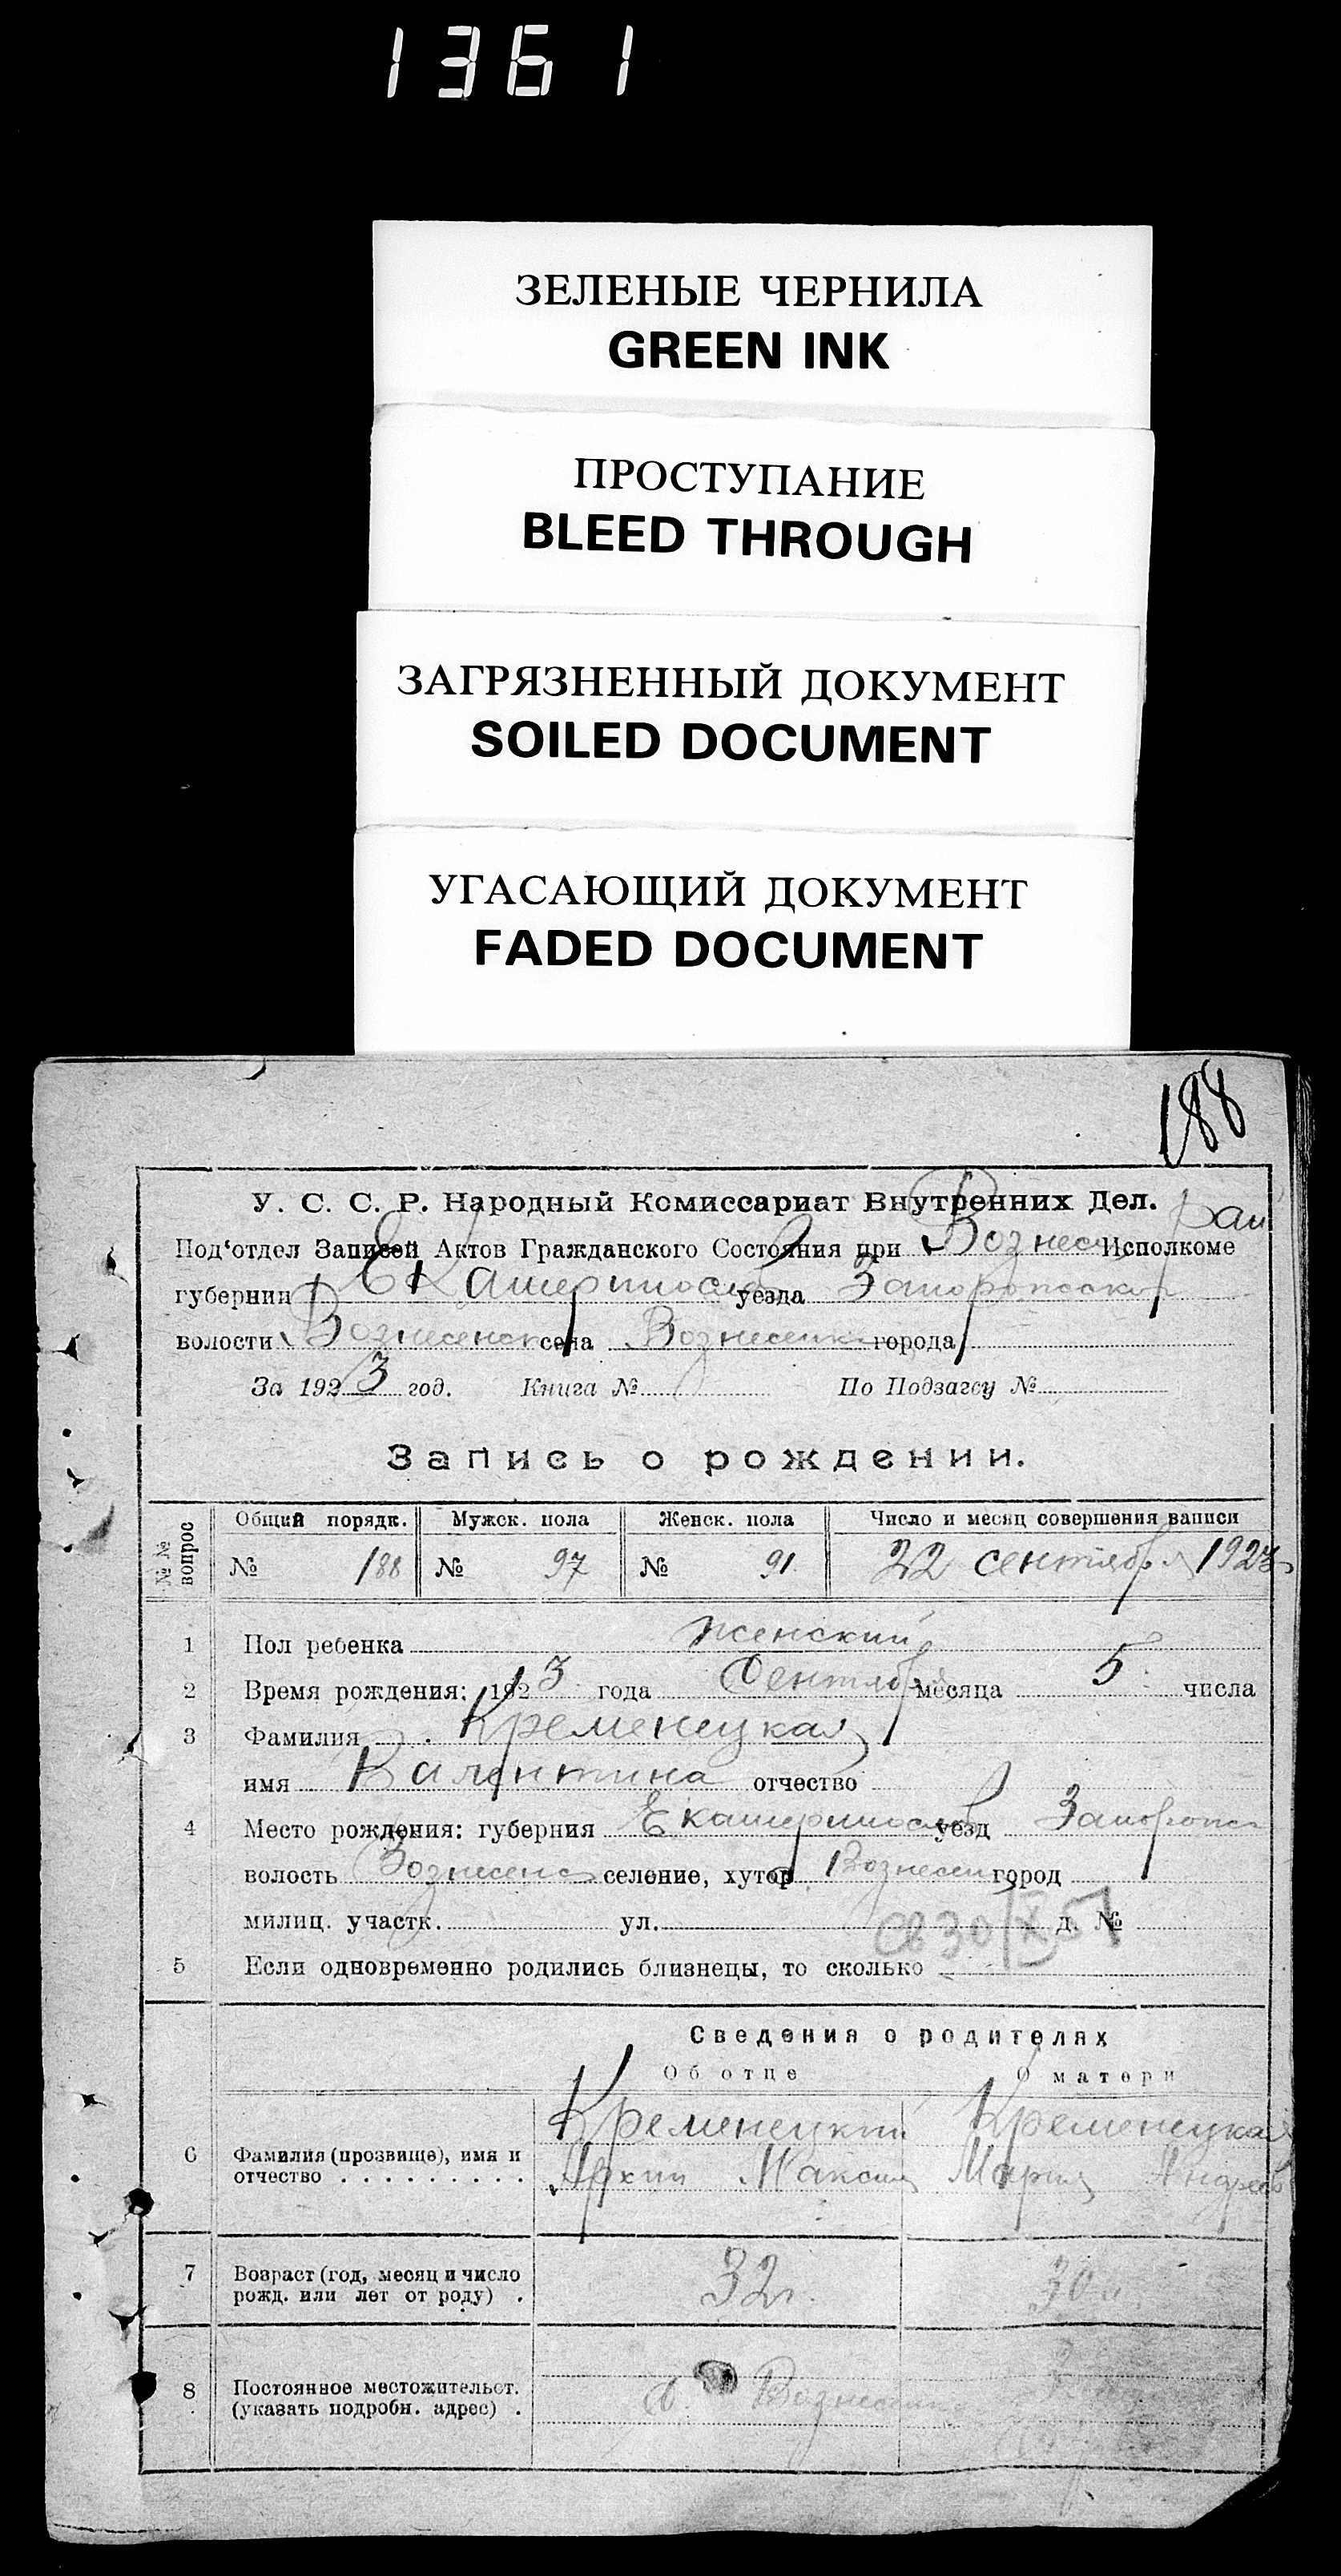 1361
ЗЕЛЕНЫЕ ЧЕРНИЛА
GREEN INK
ПРОСТУПАНИЕ
BLEED THROUGH
ЗАГРЯЗНЕННЫЙ ДОКУМЕНТ
SOILED DOCUMENT
УГАСАЮЩИЙ ДОКУМЕНТ
FADED DOCUMENT
188
У. С. С. Р. Народный Комиссариат Внутренних Дел.
Под'отдел Записей Актов Гражданского Состояния при Вознес Рай Исполкоме
губернии Екатеринослав уезда Запорожской
волости Вознесенск села Вознесенка города
За 1923 год. Книга № По Подзагсу №
Запись о рождении.
№№ вопрос Общий порядк. Мужск. пола Женск. пола Число и месяц совершения записи
№ 188 № 97 № 91 22 сентября 1923
1 Пол ребенка женский
2 Время рождения: 1923 года Сентября месяца 5 числа
3 Фамилия Кременецкая
имя Валентина отчество
4 Место рождения: губерния Екатеринослав уезд Запорожс
волость Вознесенс селение, хутор Вознесен город
милиц. участк. ул. д. №
св 30/X 51
5 Если одновременно родились близнецы, то сколько
Сведения о родителях
Об отце О матери
Кременецкий Кременецкая
6 Фамилия (прозвище), имя и
отчество . . . . . . . . . Архип Максим Мария Андреев
7 Возраст (год, месяц и число
рожд. или лет от роду) . 32 л. 30 л.
8 Постоянное местожительст.
(указать подробн. адрес) . с. Вознесенк